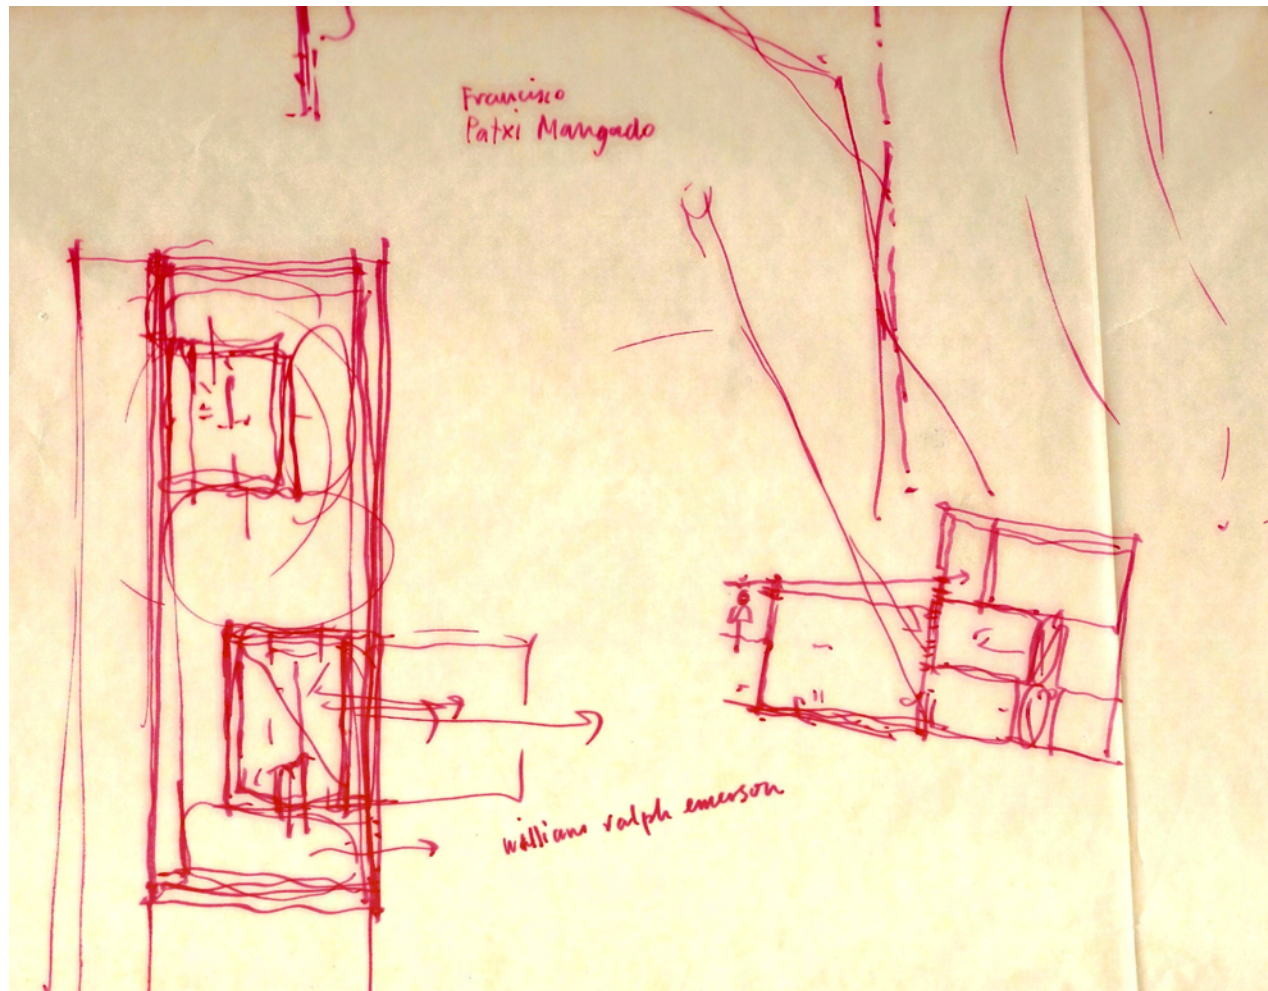 Francisco
Patxi Mangado
william ralph emerson